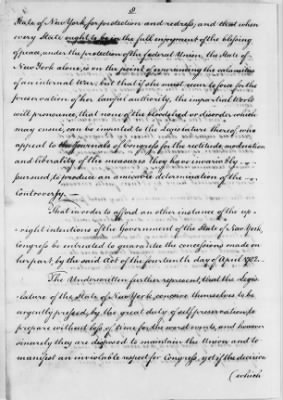 2
State of New York for protection and redress, and that when
every State ought to be in the full enjoyment of the blessing
of peace, under the protection of the federal Union, the State of
New York alone, is on the point of experiencing the calamities
of an internal War, but that if she must recur to force for the
preservation of her lawful authority, the impartial World
will pronounce, that none of the bloodshed or disorder which
may ensue, can be imputed to the Legislature thereof, who
appeal to the Journals of Congress for the rectitude, moderation
and liberality of the measures they have invariably
pursued, to produce an amicable determination of the
Controversy.
That in order to afford an other instance of the up-
right intentions of the Government of the State of New York,
Congress be intreated to guarantee the concessions made on
her part, by the said Act of the fourteenth day of April 1782.
The Underwritten further represent, that the Legis-
lature of the State of New York, conceive themselves to be
urgently pressed, by the great duty of self preservation, to
prepare without loss of time for the worst events, and however
sincerely they are disposed to maintain the Union and to
manifest an inviolable respect for Congress, yet if the decision
(which